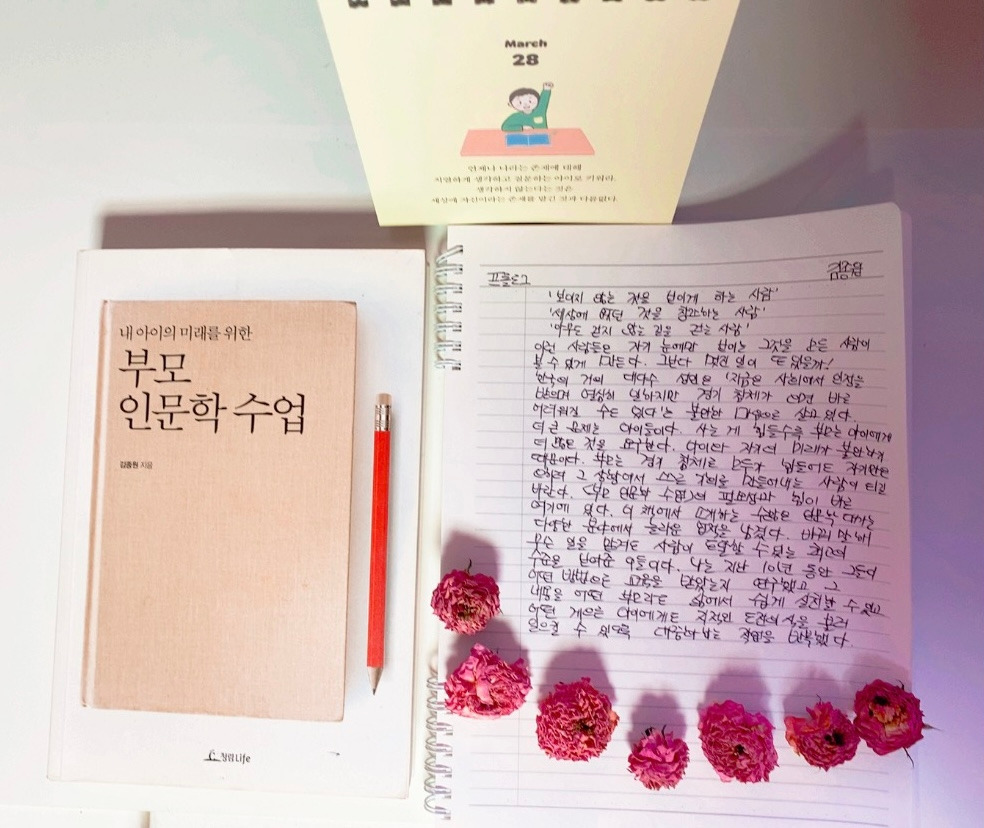 March
28
언제나 나라는 존재에 대해
치열하게 생각하고 질문하는 아이로 키워라.
생각하지 않는다는 것은
세상에 자신이라는 존재를 맡긴 것과 다름없다.
내 아이의 미래를 위한
부모
인문학 수업
김종원 지음
청림Life
프롤로그
김종원
'보이지 않는 것을 보이게 하는 사람'
'세상에 없던 것을 창조하는 사람'
'아무도 걷지 않는 길을 걷는 사람'
이런 사람들은 자기 눈에만 보이는 그것을 모든 사람이
볼 수 있게 만든다. 그보다 멋진 일이 또 있을까!
한국의 거의 대다수 성인은 '지금은 사회에서 인정을
받으며 열심히 일하지만 경기 침체가 오면 바로
어려워질 수도 있다'는 불안한 마음으로 살고 있다.
더 큰 문제는 아이들이다. 사는 게 힘들수록 부모는 아이에게
더 많은 것을 요구한다. 아이와 자기의 미래가 불안하기
때문이다. 부모는 경기 침체로 모두가 힘들어도 자기만은
오히려 그 상황에서 스스로 기회를 만들어내는 사람이 되길
바란다. <부모 인문학 수업>의 필요성과 힘이 바로
여기에 있다. 이 책에서 소개하는 수많은 인문학 대가는
다양한 분야에서 놀라운 업적을 남겼다. 바꿔 말해
무슨 일을 맡겨도 사람이 도달할 수 있는 최고의
수준을 보여준 이들이다. 나는 지난 10년 동안 그들이
어떤 방법으로 교육을 받았는지 연구했고 그
내용을 어떤 부모라도 삶에서 쉽게 실천할 수 있고
어떤 게으른 아이에게도 지적인 도전의식을 불러
일으킬 수 있도록 대중화하는 작업을 반복했다.